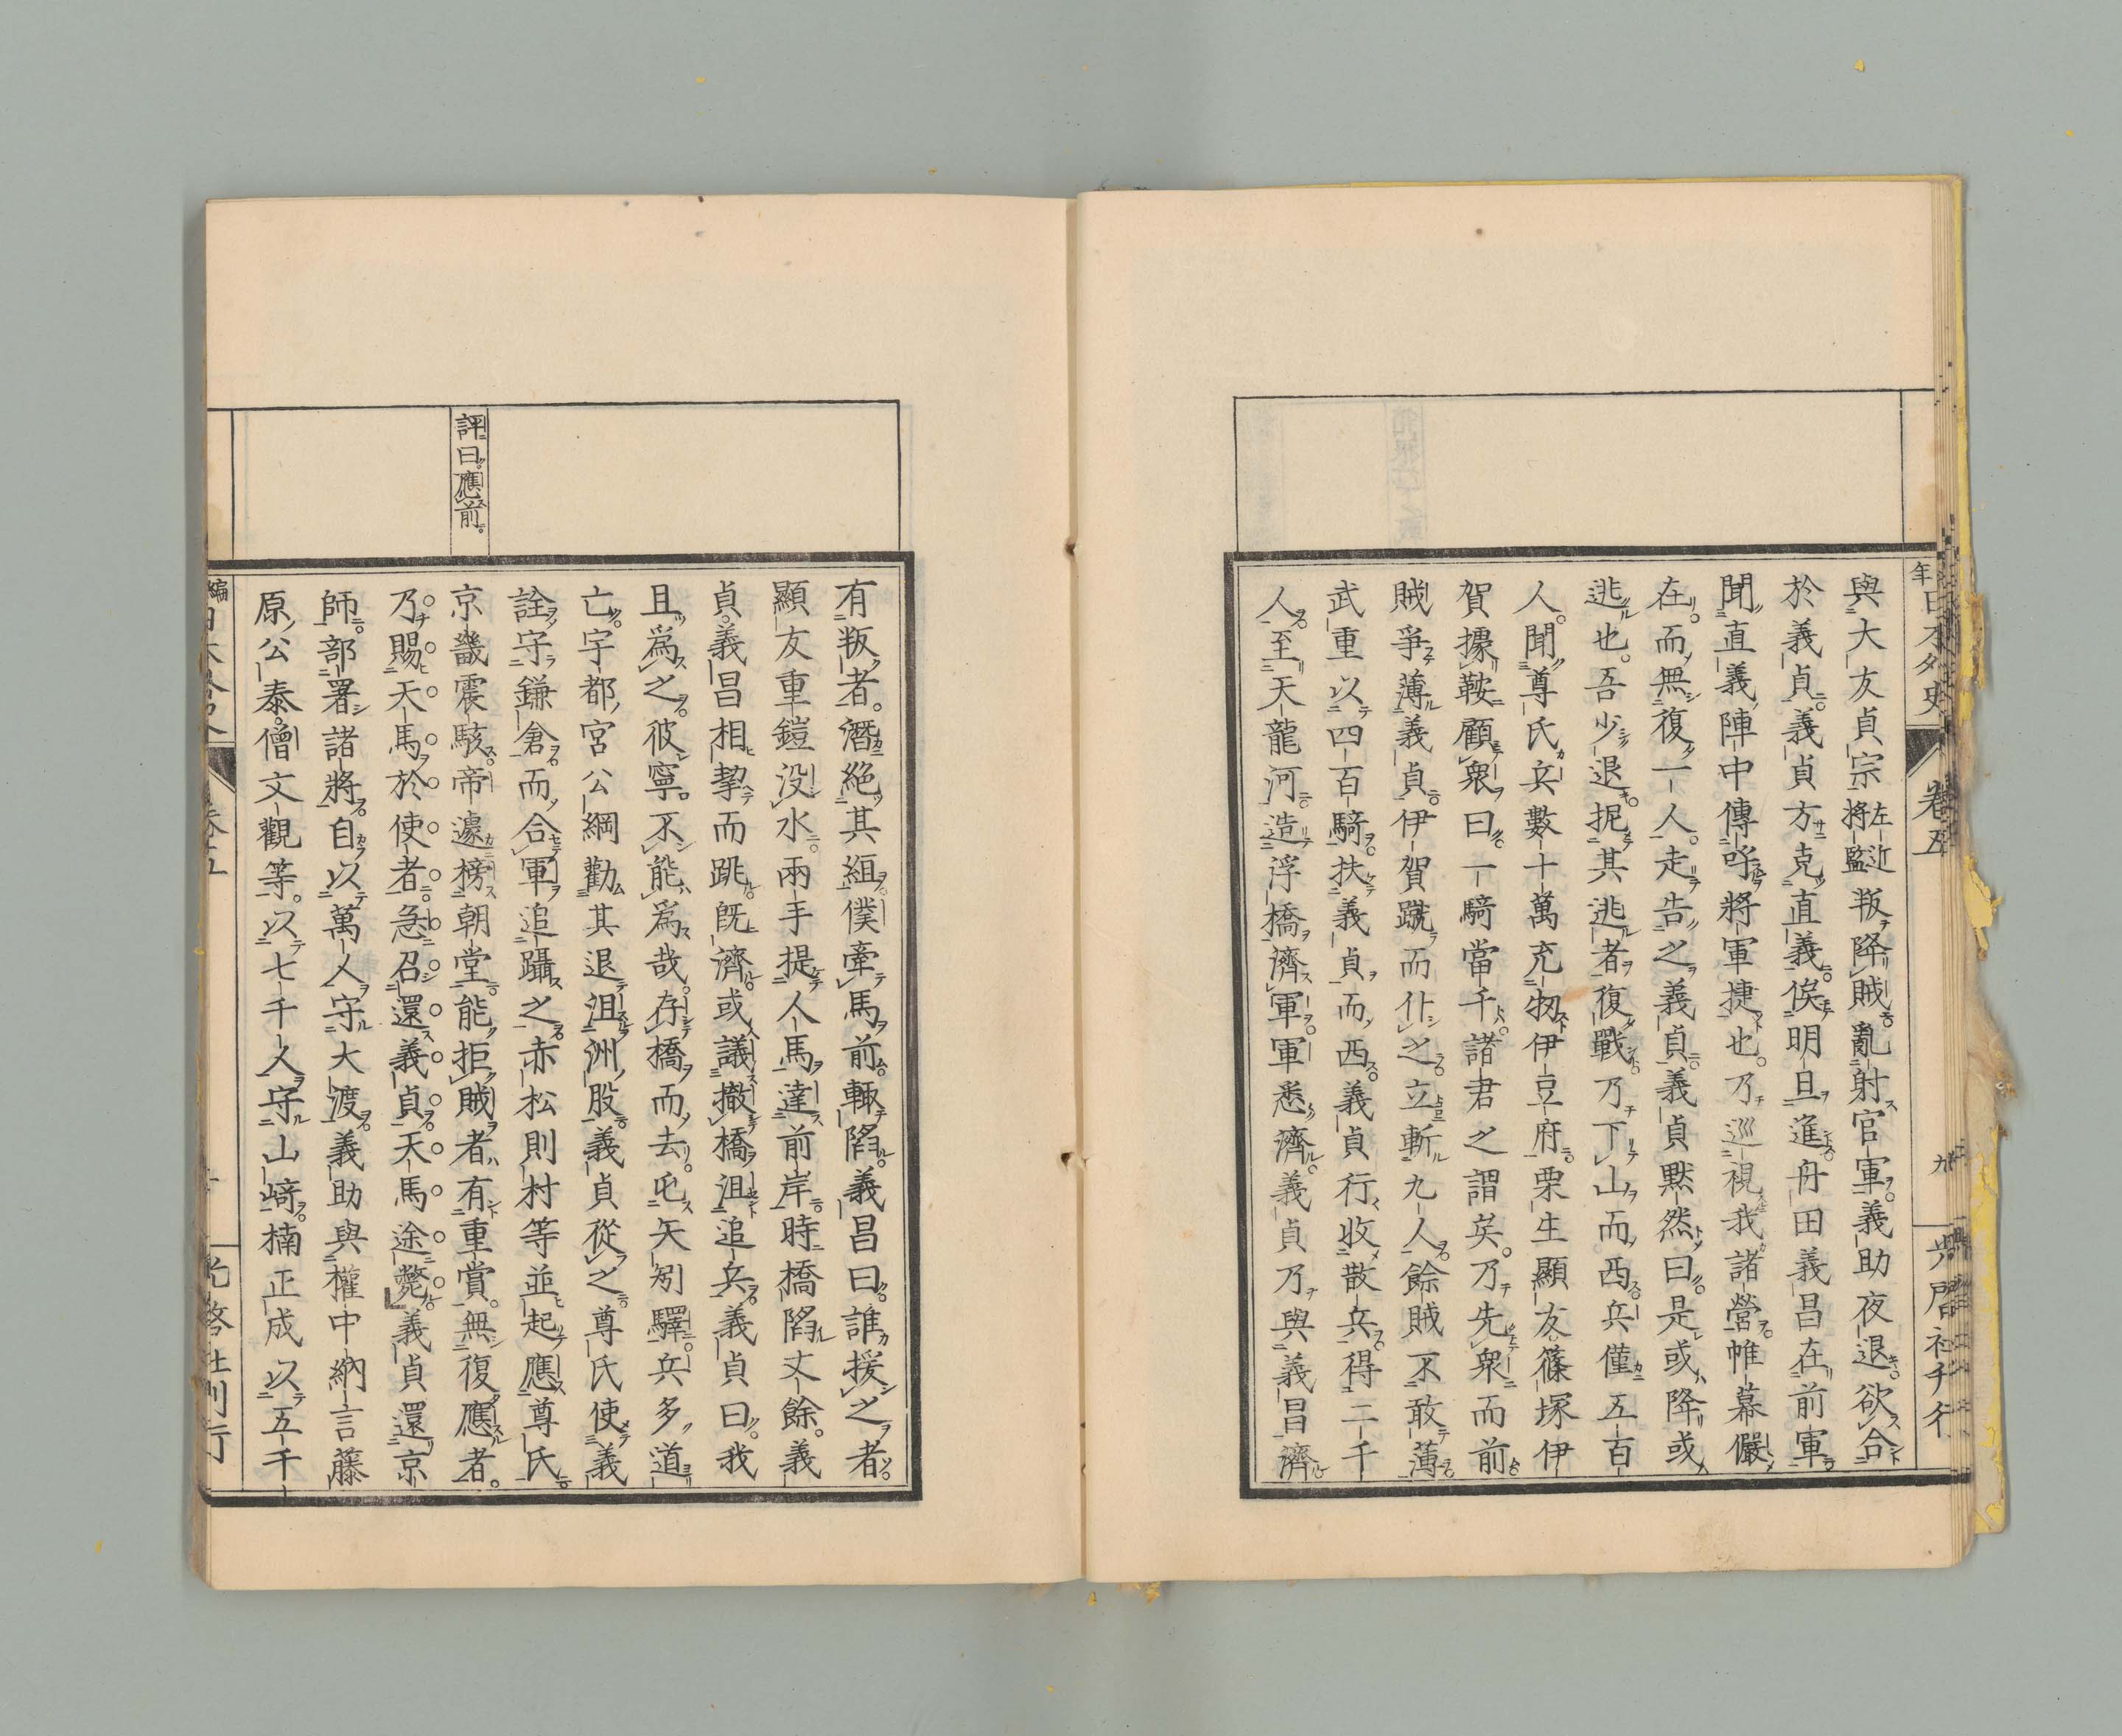 與大友貞宗左近將監叛降賊亂射官軍義助夜退欲合
於義貞義貞方克直義俟明旦進舟田義昌在前軍
聞直義陣中傳呼將軍捷也乃巡視我諸營帷幕儼
在而無復一人走告之義貞義貞默然曰是或降或
逃也吾少退扼其逃者復戰乃下山而西兵僅五百
人聞尊氏兵數十萬充牣伊豆府栗生顯友篠塚伊
賀攘鞍顧衆曰一騎當千諸君之謂矣乃先衆而前
賊爭薄義貞伊賀蹴而仆之立斬九人餘賊不敢薄
武重以四百騎扶義貞而西義貞行收散兵得二千
人至天龍河造浮橋濟軍軍悉濟義貞乃與義昌濟
卷五
有叛者潛絶其絙僕牽馬前輒陷義昌曰誰援之者
顯友重鎧没水兩手提人馬達前岸時橋陷丈餘義
貞義昌相挈而跳旣濟或議撤橋沮追兵義貞曰我
且爲之彼寧不能爲哉存橋而去屯矢矧驛兵多道
亡宇都宮公綱勸其退沮洲股義貞從之尊氏使義
詮守鎌倉而合軍追躡之赤松則村等並起應尊氏
京畿震駭帝遽榜朝堂能拒賊者有重賞無復應者
乃賜天馬於使者急召還義貞天馬途斃義貞還京
師部署諸將自以萬人守大渡義助與權中納言藤
原公泰僧文觀等以七千人守山﨑楠正成以五千
評曰應前